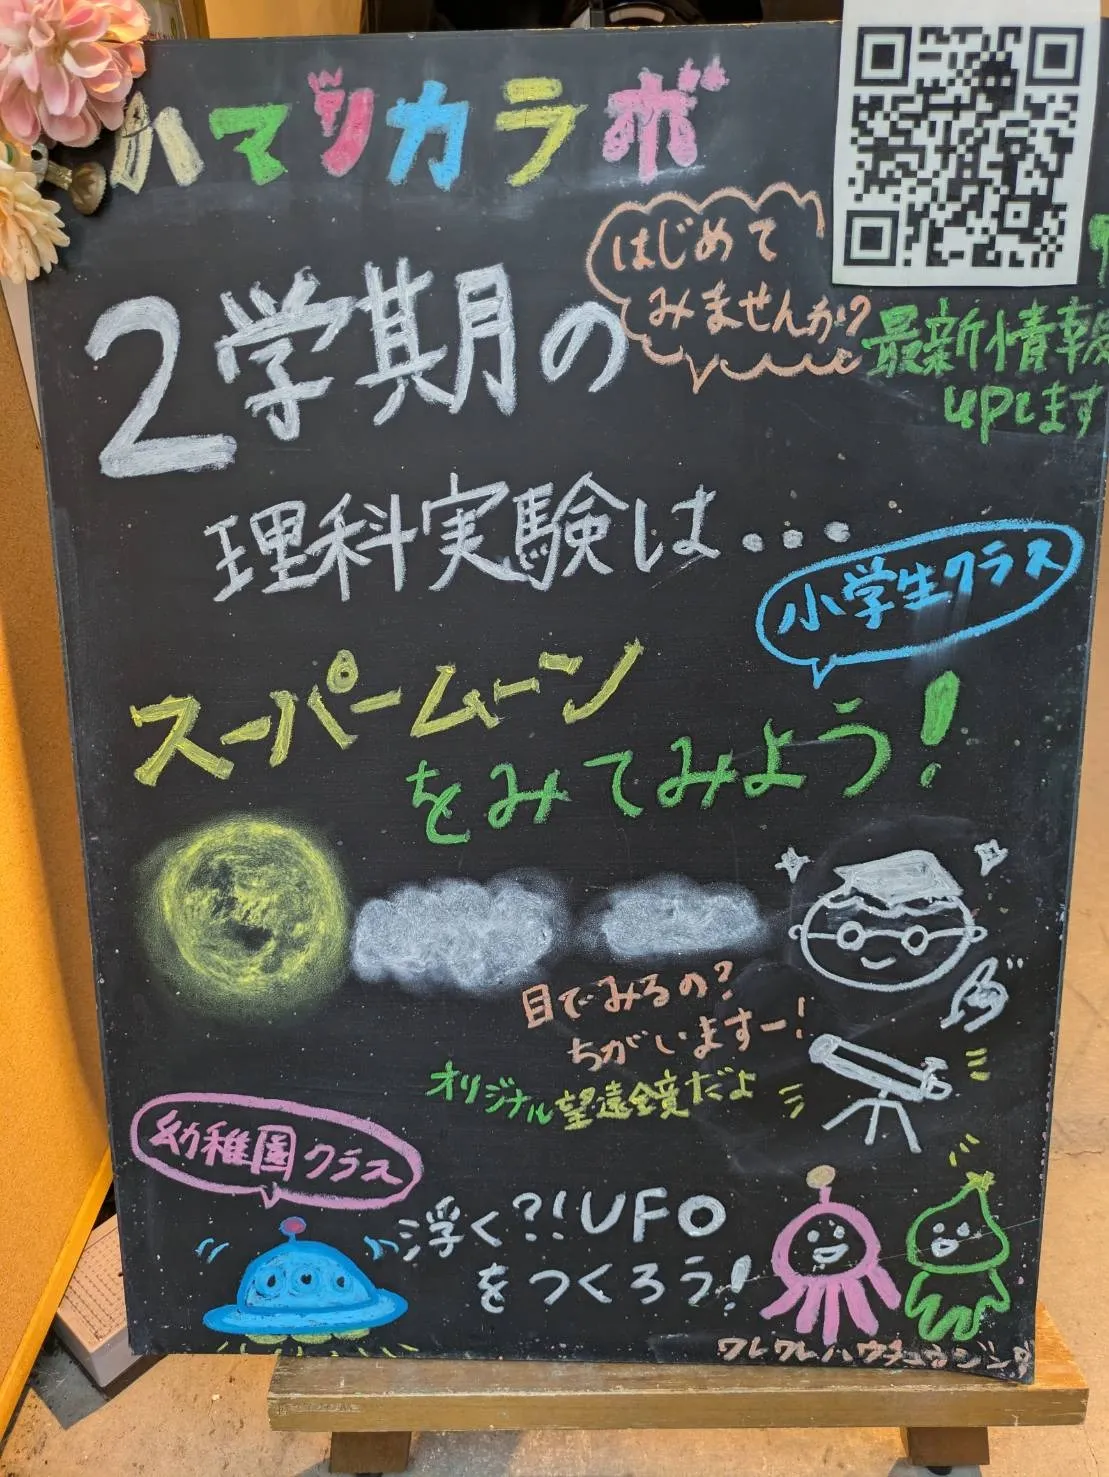 ハマツカラボ
はじめて
みませんか?
最新情報
upします
2学期の
理科実験は...
小学生クラス
スーパームーン
をみてみよう!
目でみるの?
ちがいますー!
オリジナル望遠鏡だよ
幼稚園クラス
浮く?!UFO
をつくろう!
ワレワレハウチュウジンダ